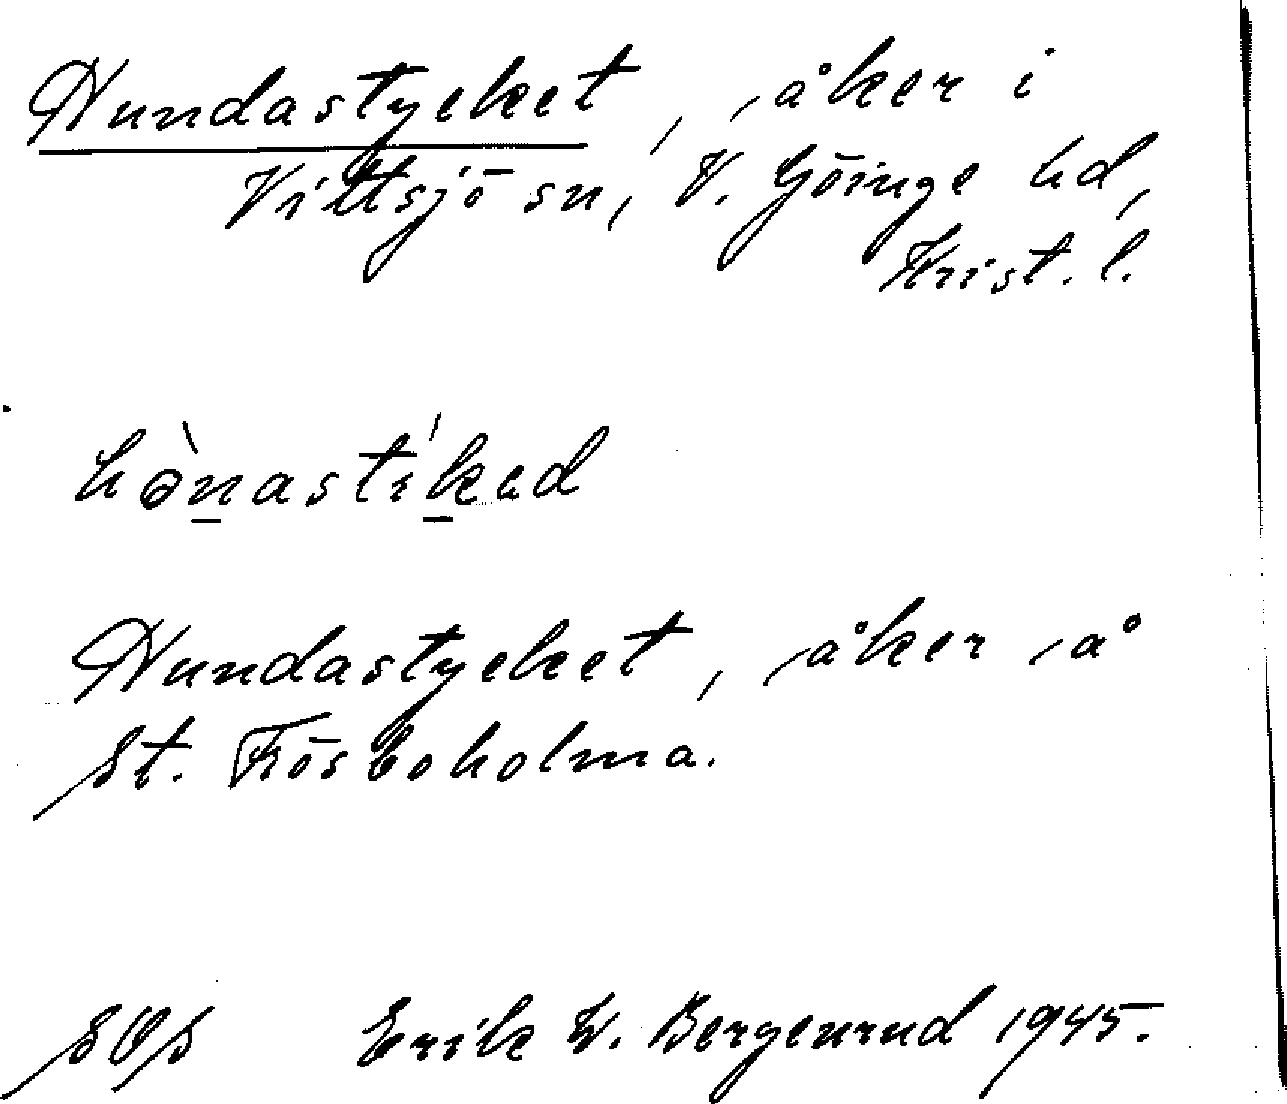 Hundastycket, åker i
Vittsjö sn, V. Göinge hd,
Krist. l.
hònastíkad
Hundastycket, åker å
St. Frösboholma.
SOS Erik W. Bergenrud 1945.